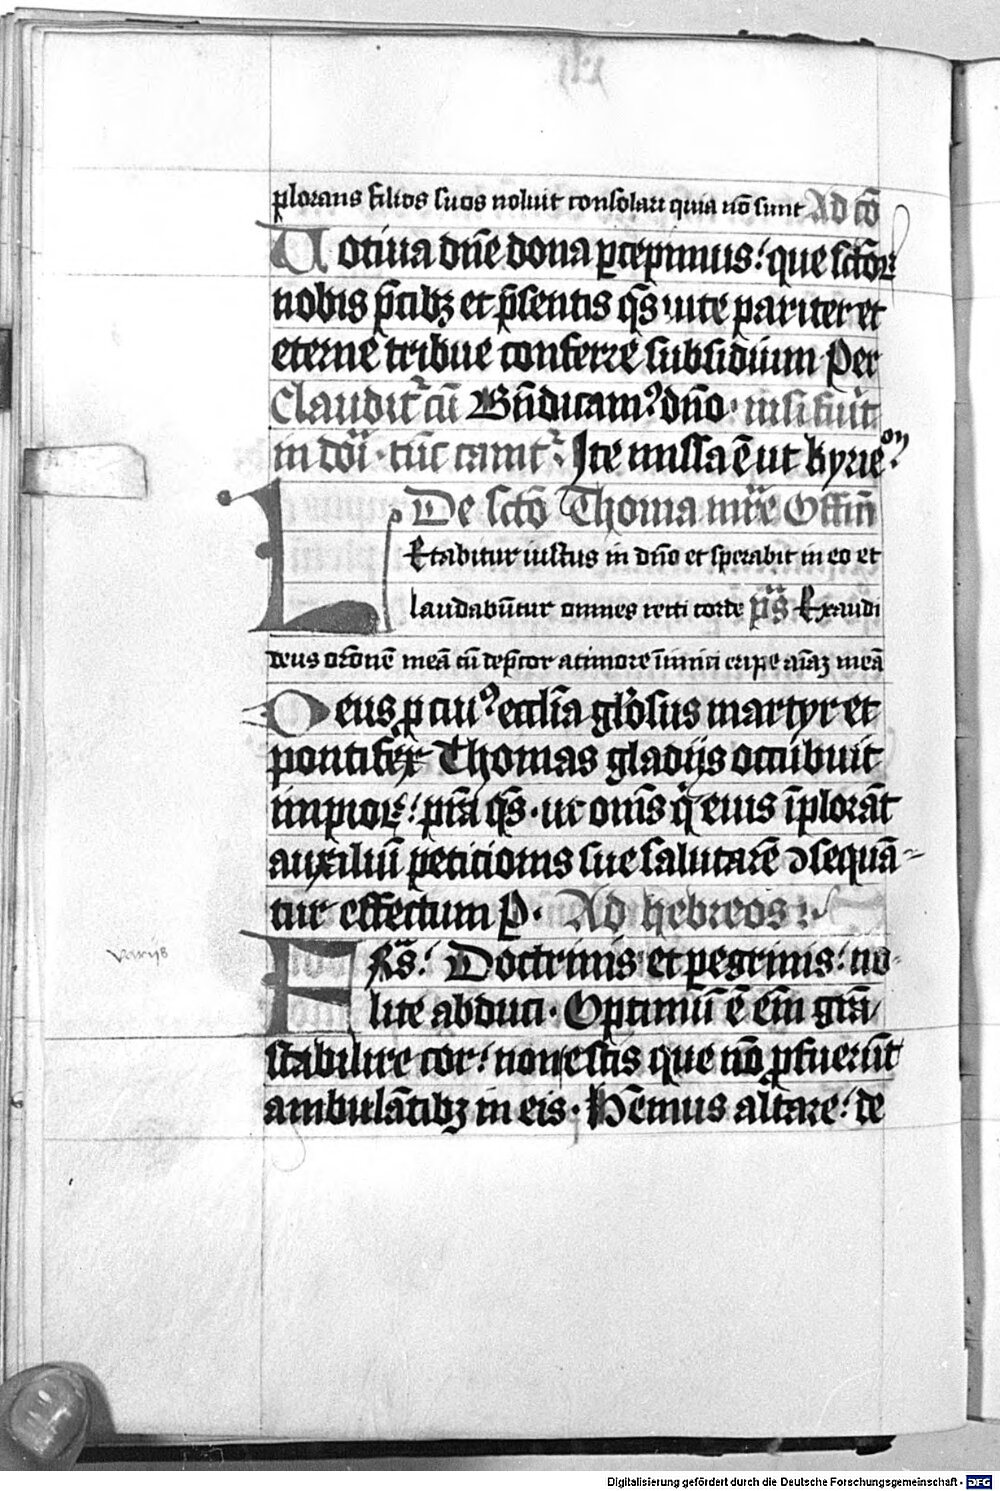 plorans filios suos noluit consolari quia nō sunt Ad cō
Uotiua dn̄e dona ꝑcepimus: que sctōꝝ
nobis p̄cibꝫ et p̄sentis qs̄ uite pariter et
eterne tribue conferre subsidium Per
Claudit᷑ cū Bn̄dicamꝰ dn̄o · nisi fuīt
in dōi · tūc canit᷑ Ite missa ē ut kyrieōn
De sctō Thoma mr̄e Offm̄
LEtabitur iustus in dn̄o et sperabit in eo et
laudabūtur omnes recti corde ps̄ Exaudi
deus orōnē meā cū dep̄cor a timore inimici eripe aīaꝫ meā
Deus ꝓ cuiꝰ eccl̄ia gl̓osus martyr et
pontifex Thomas gladijs occubuit
impioꝝ: pr̄a qs̄ · ut om̄s q̄ eius īplorāt
auxiliū petitionis sue salutarē ↄsequā-
tur effectum P · Ad hebreos
FRs̄: Doctrinis et pegrinis: no-
lite abduci · Optimū ē em̄ gr̄a
stabilire cor: non escis que nō ꝓfuerūt
ambulātibꝫ in eis · Hēmus altare: de
varijs
Digitalisierung gefördert durch die Deutsche Forschungsgemeinschaft - DFG